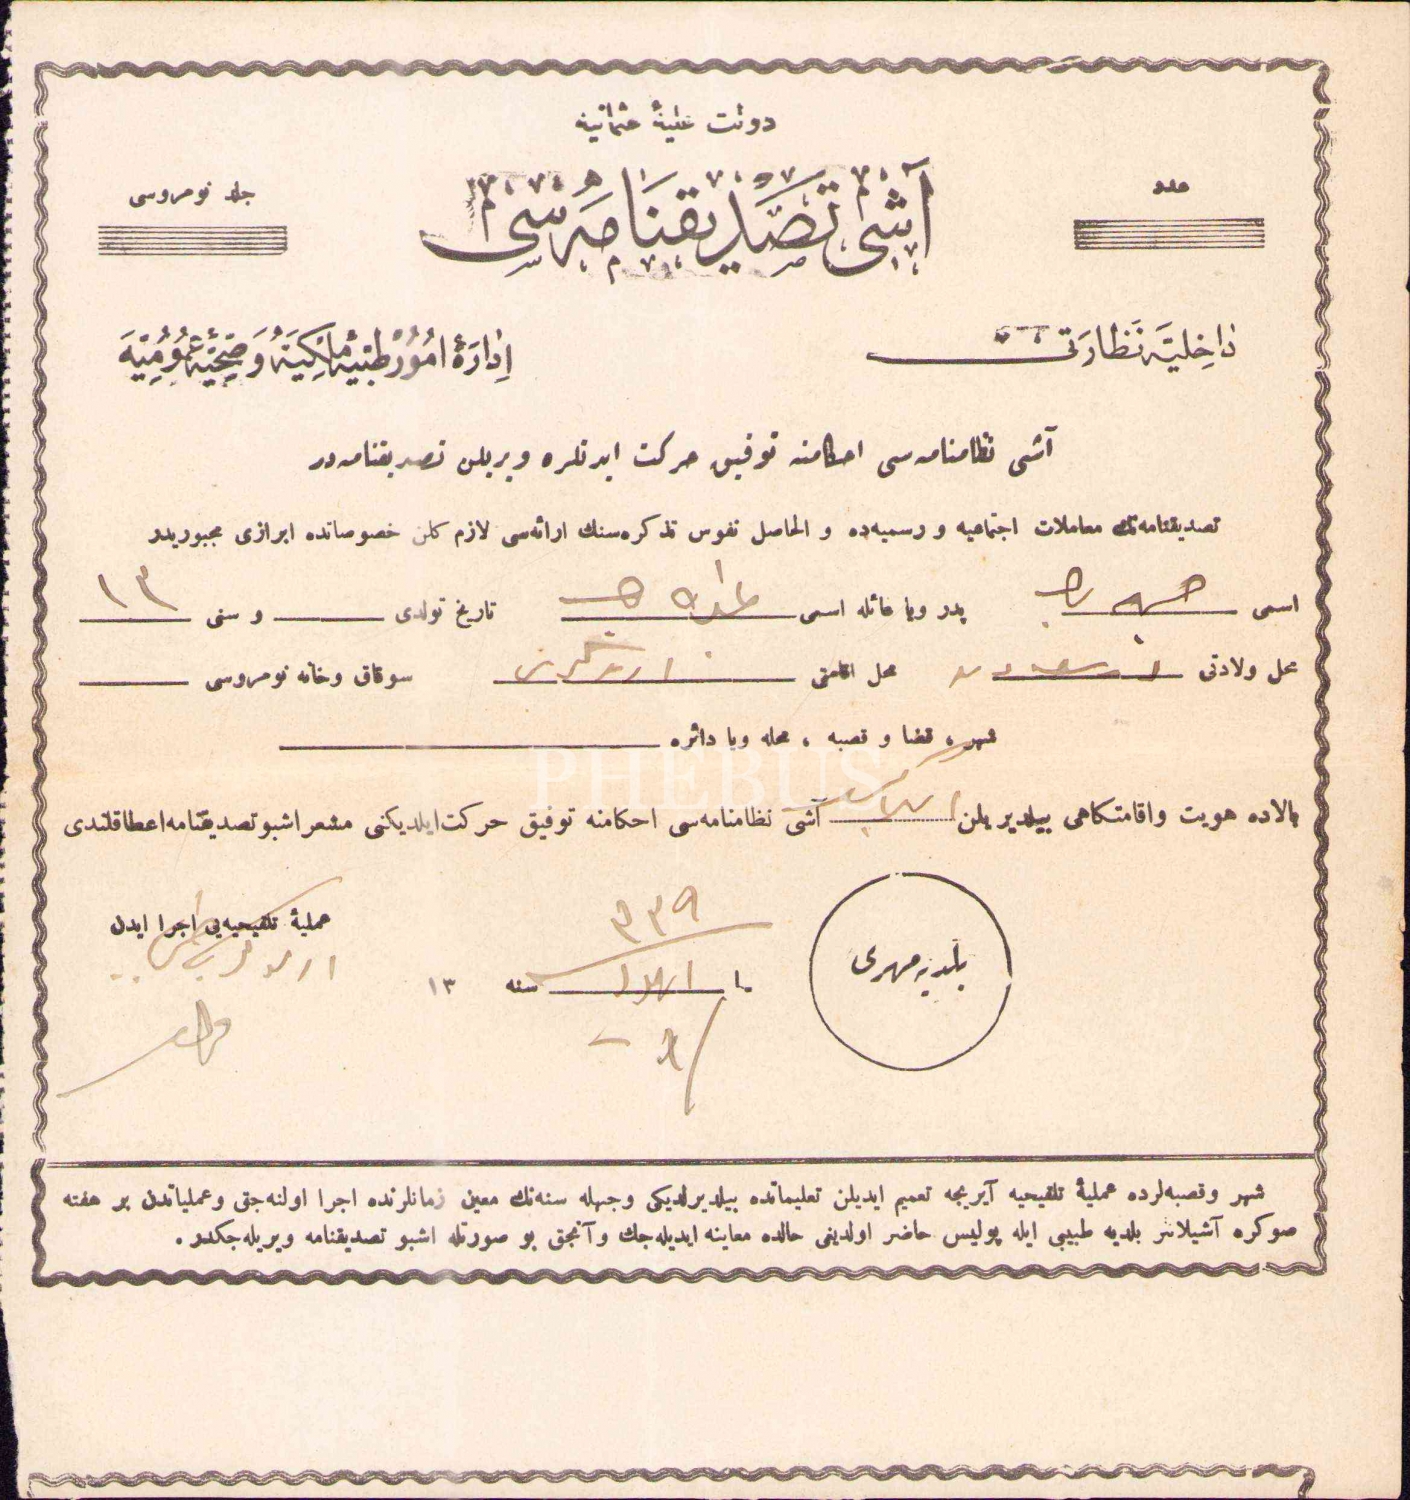 دولت علیهٔ عثمانیه
عدد
آشی تصدیقنامه‌سی
جلد نومروسی
داخلیه نظارتی
ادارهٔ امور طبیهٔ ملکیه و صحیهٔ عمومیه
آشی نظامنامه‌سی احکامنه توفیق حرکت ایدنلره ویریلن تصدیقنامه‌در
تصدیقنامه‌نك معاملات اجتماعیه و رسمیه‌ده و الحاصل نفوس تذکره‌سنك ارائه‌سی لازم کلن خصوصاتده ابرازی مجبوریدر
اسمی پدر ویا عائله اسمی تاریخ تولدی و سنی ١٣
محل ولادتی محل اقامتی سوقاق وخانه نومروسی
شهر ، قضا و قصبه ، محله ویا دائره
PHEBUS
بالاده هویت واقامتکاهی بیلدیریلن آشی نظامنامه‌سی احکامنه توفیق حرکت ایلدیکنی مشعر اشبو تصدیقنامه اعطا قلندی
عملیهٔ تلقیحیه‌یی اجرا ایدن
٣٣٩
بلدیه مهری
فی ایلول سنه ١٣
شهر وقصبه‌لرده عملیهٔ تلقیحیه آیریجه تعمیم ایدیلن تعلیماتده بیلدیرلدیکی وجهله سنه‌نك معین زمانلرنده اجرا اولنه‌جق وعملیاتدن بر هفته
صوکره آشیلانلر بلدیه طبیبی ایله پولیس حاضر اولدیغی حالده معاینه ایدیله‌جك وآنجق بو صورتله اشبو تصدیقنامه ویریله‌جکدر .